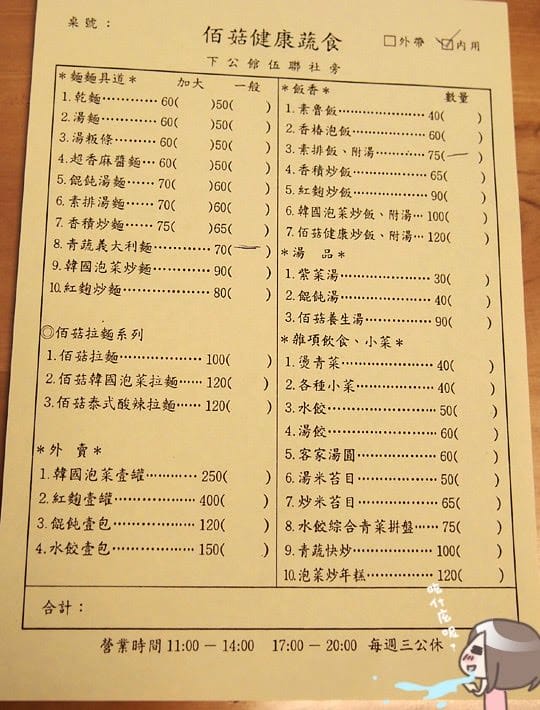 桌號：
佰菇健康蔬食
□外帶 ☑內用
下公館伍聯社旁
＊麵麵具道＊ 加大 一般
1.乾麵…………60( )50( )
2.湯麵…………60( )50( )
3.湯粄條………60( )50( )
4.超香麻醬麵…60( )50( )
5.餛飩湯麵……70( )60( )
6.素排湯麵……70( )60( )
7.香積炒麵……75( )65( )
8.青蔬義大利麵…………70(一)
9.韓國泡菜炒麵…………90( )
10.紅麴炒麵………………80( )
◎佰菇拉麵系列
1.佰菇拉麵………………100( )
2.佰菇韓國泡菜拉麵……120( )
3.佰菇泰式酸辣拉麵……120( )
＊外 賣＊
1.韓國泡菜壹罐…………250( )
2.紅麴壹罐………………400( )
3.餛飩壹包………………120( )
4.水餃壹包………………150( )
＊飯香＊ 數量
1.素魯飯…………………40( )
2.香椿泡飯………………60( )
3.素排飯、附湯…………75(一)
4.香積炒飯………………65( )
5.紅麴炒飯………………90( )
6.韓國泡菜炒飯、附湯…100( )
7.佰菇健康炒飯、附湯…120( )
＊湯 品＊
1.紫菜湯…………………30( )
2.餛飩湯…………………40( )
3.佰菇養生湯……………90( )
＊雜項飲食、小菜＊
1.燙青菜…………………40( )
2.各種小菜………………40( )
3.水餃……………………50( )
4.湯餃……………………60( )
5.客家湯圓………………60( )
6.湯米苔目………………60( )
7.炒米苔目………………65( )
8.水餃綜合青菜拼盤……75( )
9.青蔬快炒………………100( )
10.泡菜炒年糕……………120( )
合計：
營業時間11:00－14:00 17:00－20:00 每週三公休
吃什麼呢？